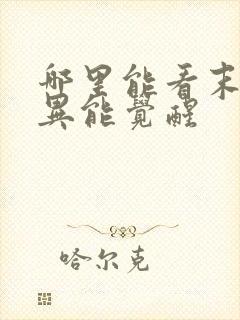 哪里能看末
異能覺醒
哈尔克